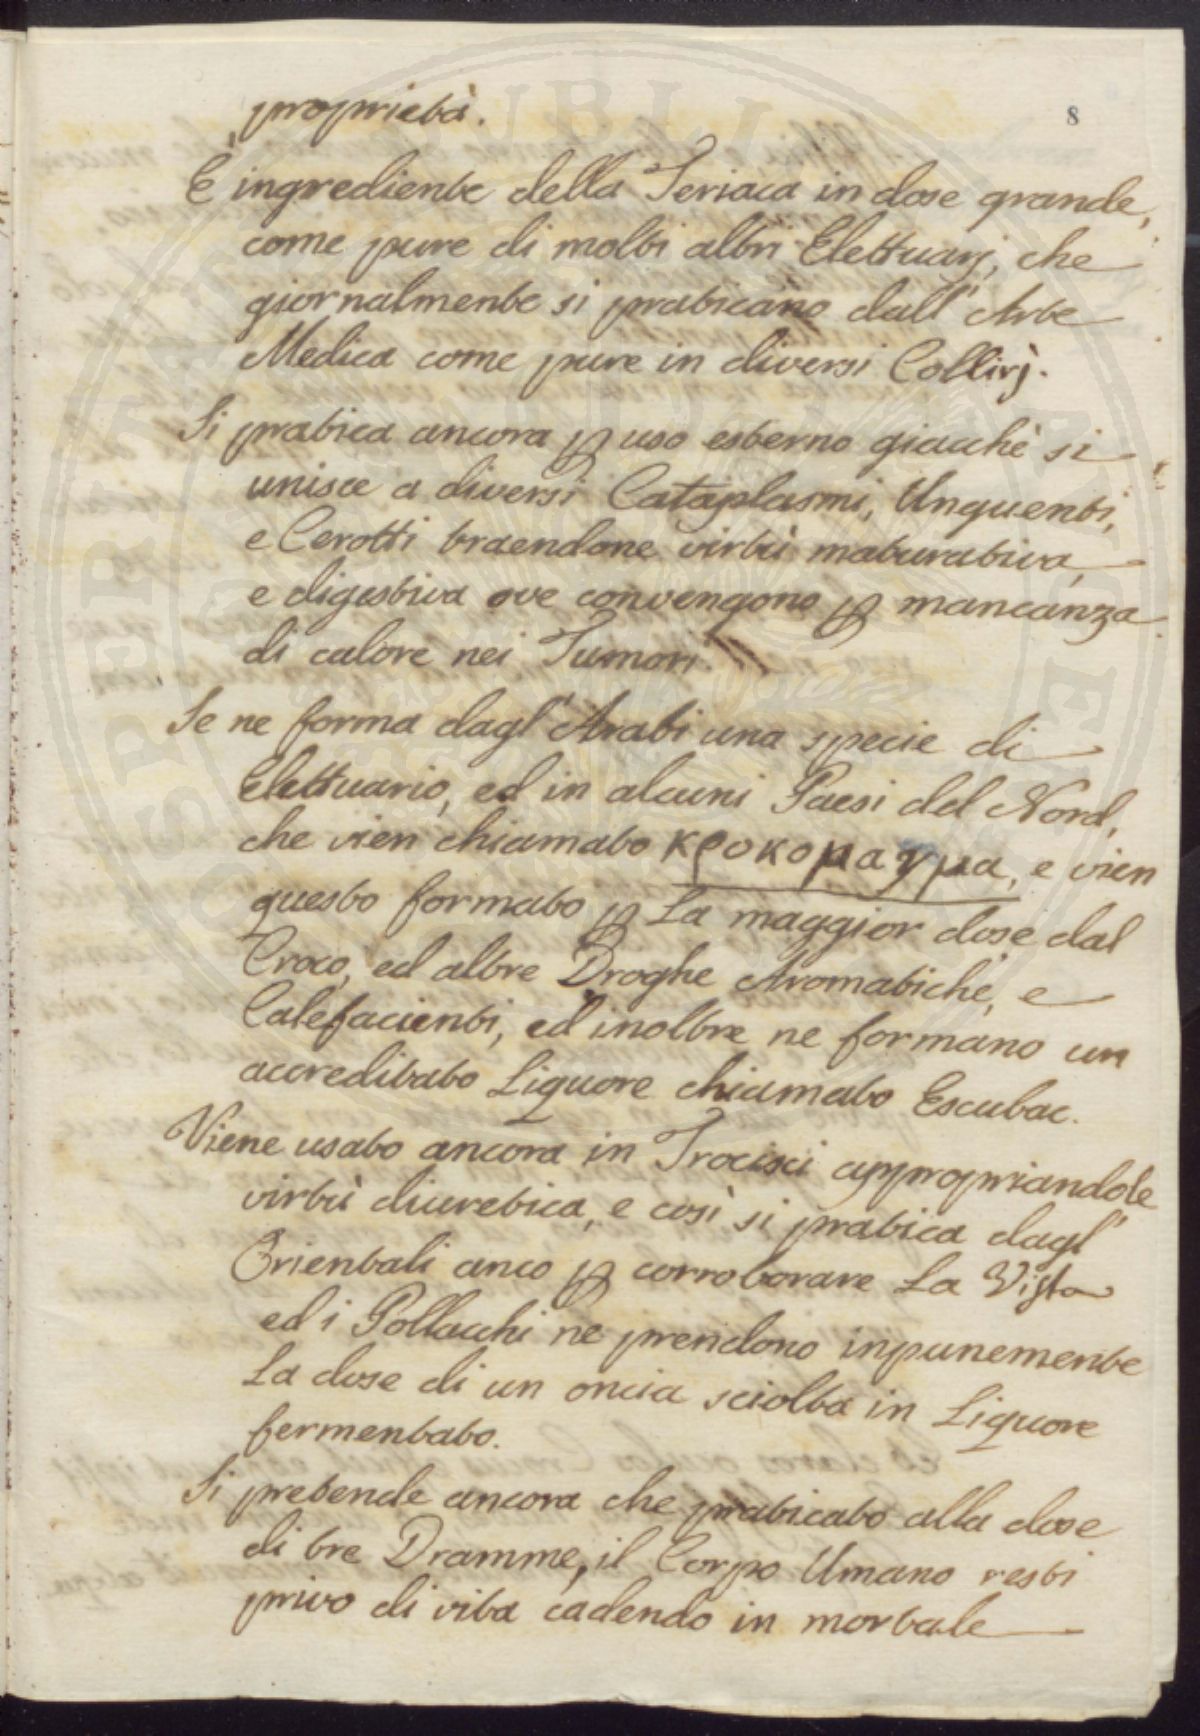 8
proprietà.
È ingrediente della Teriaca in dose grande,
come pure di molti altri Elettuarj, che
giornalmente si praticano dall' Arte
Medica come pure in diversi Collirj.
Si pratica ancora ꝑ uso esterno giacchè si
unisce a diversi Cataplasmi, Unguenti,
e Cerotti traendone virtù maturativa,
e digestiva ove convengono ꝑ mancanza
di calore nei Tumori.
Se ne forma dagl' Arabi una specie di
Elettuario, ed in alcuni Paesi del Nord,
che vien chiamato κροκομαγμα, e vien
questo formato ꝑ La maggior dose dal
Croco, ed altre Droghe Aromatiche, e
Calefacienti, ed inoltre ne formano un
accreditato Liquore chiamato Escubac.
Viene usato ancora in Trocisci appropriandole
virtù diuretica, e così si pratica dagl'
Orientali anco ꝑ corroborare La Vista
ed i Pollacchi ne prendono inpunemente
La dose di un oncia sciolta in Liquore
fermentato.
Si pretende ancora che praticato alla dose
di tre Dramme, il Corpo Umano resti
privo di vita cadendo in mortale